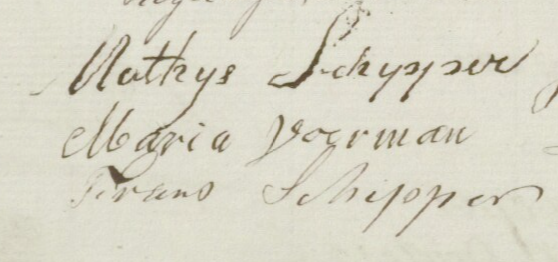 Mathys Schypper
Maria Voerman
Frans Schipper